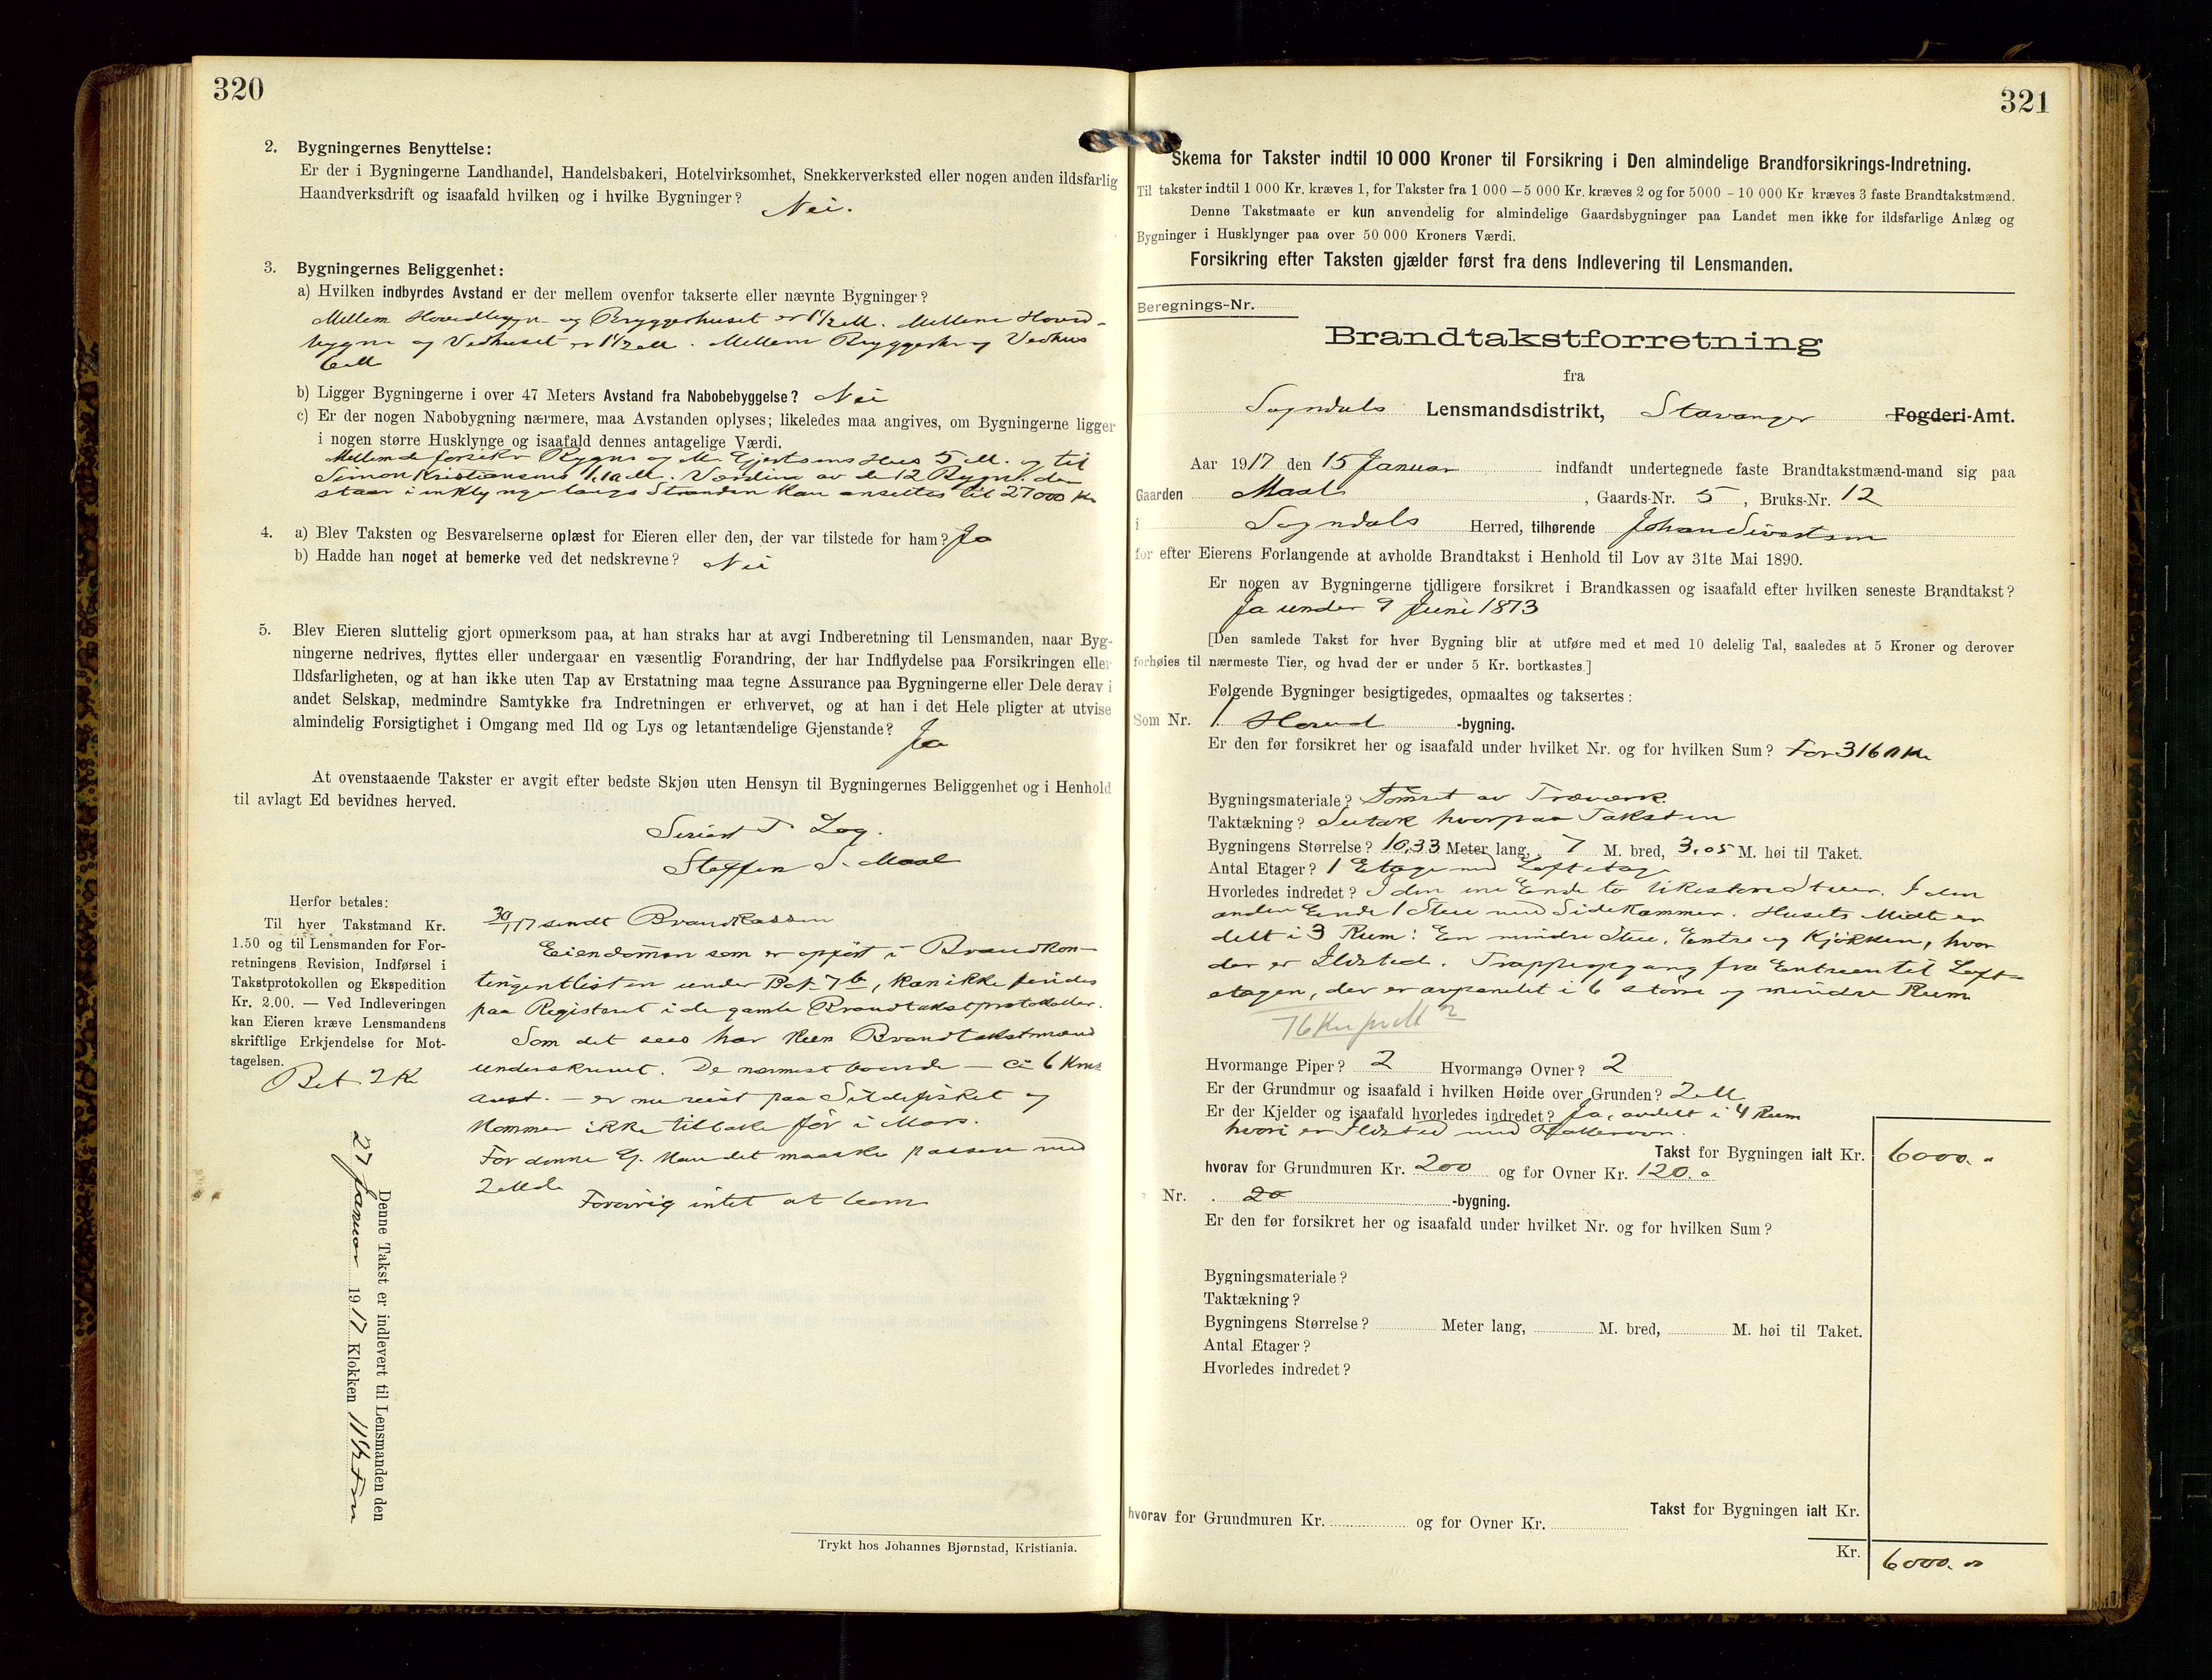 320
2. Bygningernes Benyttelse:
Er der i Bygningerne Landhandel, Handelsbakeri, Hotelvirksomhet, Snekkerverksted eller nogen anden ildsfarlig
Haandverksdrift og isaafald hvilken og i hvilke Bygninger? Nei.
3. Bygningernes Beliggenhet:
a) Hvilken indbyrdes Avstand er der mellem ovenfor takserte eller nævnte Bygninger?
Mellem Hovedbygn og Bryggerhuset er 1½ M. Mellem Hoved-
bygn og Vedhuset er 1½ M. Mellem Bryggerh og Vedhus
6 M
b) Ligger Bygningerne i over 47 Meters Avstand fra Nabobebyggelse? Nei
c) Er der nogen Nabobygning nærmere, maa Avstanden oplyses; likeledes maa angives, om Bygningerne ligger
i nogen større Husklynge og isaafald dennes antagelige Værdi.
Mellem de forsikr Bygn og M. Gjertsens Hus 5 M. og til
Simon Kristiansens M. Værdien av de 12 Bygn. der
staar i en klynge langs Stranden kan ansettes til 27000 Kr
4. a) Blev Taksten og Besvarelserne oplæst for Eieren eller den, der var tilstede for ham? Ja
b) Hadde han noget at bemerke ved det nedskrevne? Nei
5. Blev Eieren sluttelig gjort opmerksom paa, at han straks har at avgi Indberetning til Lensmanden, naar Byg-
ningerne nedrives, flyttes eller undergaar en væsentlig Forandring, der har Indflydelse paa Forsikringen eller
Ildsfarligheten, og at han ikke uten Tap av Erstatning maa tegne Assurance paa Bygningerne eller Dele derav i
andet Selskap, medmindre Samtykke fra Indretningen er erhvervet, og at han i det Hele pligter at utvise
almindelig Forsigtighet i Omgang med Ild og Lys og letantændelige Gjenstande? Ja
At ovenstaaende Takster er avgit efter bedste Skjøn uten Hensyn til Bygningernes Beliggenhet og i Henhold
til avlagt Ed bevidnes herved.
Sivert T. Log.
Steffen S. Maal
Herfor betales:
Til hver Takstmand Kr.
1.50 og til Lensmanden for For-
retningens Revision, Indførsel i
Takstprotokollen og Ekspedition
Kr. 2.00. — Ved Indleveringen
kan Eieren kræve Lensmandens
skriftlige Erkjendelse for Mot-
tagelsen.
Bet 2 Kr
30/1 17 sendt Brandkassen
Eiendommen som er opført i Brandkon-
tingentlisten under Bet. 7 b, kan ikke findes
paa Registeret i de gamle Brandtakstprotokoller.
Som det sees har kun Brandtakstmænd
underskrevet. De nærmest boende — ca 6 Km
avst. — er nu reist paa Sildefisket og
kommer ikke tilbake før i Mars.
For denne G. kan det maaske passere med
2 Mænd.
Forøvrig intet at bem
Denne Takst er indlevert til Lensmanden den
27 Januar 1917 Klokken 11½ Fm
Trykt hos Johannes Bjørnstad, Kristiania.
321
Skema for Takster indtil 10 000 Kroner til Forsikring i Den almindelige Brandforsikrings-Indretning.
Til takster indtil 1 000 Kr. kræves 1, for Takster fra 1 000 —5 000 Kr. kræves 2 og for 5000 - 10 000 Kr kræves 3 faste Brandtakstmænd.
Denne Takstmaate er kun anvendelig for almindelige Gaardsbygninger paa Landet men ikke for ildsfarlige Anlæg og
Bygninger i Husklynger paa over 50 000 Kroners Værdi.
Forsikring efter Taksten gjælder først fra dens Indlevering til Lensmanden.
Beregnings-Nr.
Brandtakstforretning
fra
Sogndals Lensmandsdistrikt, Stavanger Fogderi-Amt.
Aar 1917 den 15 Januar indfandt undertegnede faste Brandtakstmænd-mand sig paa
Gaarden Maal, Gaards-Nr. 5, Bruks-Nr. 12
i Sogndals Herred, tilhørende Johan Sivertsen
for efter Eierens Forlangende at avholde Brandtakst i Henhold til Lov av 31te Mai 1890.
Er nogen av Bygningerne tidligere forsikret i Brandkassen og isaafald efter hvilken seneste Brandtakst?
Ja under 9 Juni 1873
[Den samlede Takst for hver Bygning blir at utføre med et med 10 delelig Tal, saaledes at 5 Kroner og derover
forhøies til nærmeste Tier, og hvad der er under 5 Kr. bortkastes.]
Følgende Bygninger besigtigedes, opmaaltes og taksertes:
Som Nr. 1. Hoved -bygning.
Er den før forsikret her og isaafald under hvilket Nr. og for hvilken Sum? For 3160 Kr
Bygningsmateriale? Tømret av Træværk.
Taktækning? Sutak hvorpaa Taksten
Bygningens Størrelse? 10,33 Meter lang, 7 M. bred, 3,05 M. høi til Taket.
Antal Etager? 1 Etage med Loftetage
Hvorledes indredet? I den ene Ende to likestore Stuer. I den
anden Ende 1 Stue med Sidekammer. Husets Midte er
delt i 3 Rum: En mindre Stue, Entre og Kjøkken, hvor
der er Ildsted. Trappeopgang fra Entreen til Loft-
etagen, der er avpanelet i 6 større og mindre Rum
76 Kr pr M²
Hvormange Piper? 2 Hvormange Ovner? 2
Er der Grundmur og isaafald i hvilken Høide over Grunden? 2 M
Er der Kjelder og isaafald hvorledes indredet? Ja, avdelt i 4 Rum
hvori er Ildsted med
Takst for Bygningen ialt Kr. 6000. "
hvorav for Grundmuren Kr. 200 og for Ovner Kr. 120. "
Nr. -bygning.
Er den før forsikret her og isaafald under hvilket Nr. og for hvilken Sum?
Bygningsmateriale?
Taktækning?
Bygningens Størrelse? Meter lang, M. bred, M. høi til Taket.
Antal Etager?
Hvorledes indredet?
Takst for Bygningen ialt Kr.
hvorav for Grundmuren Kr. og for Ovner Kr.
Kr. 6000. "